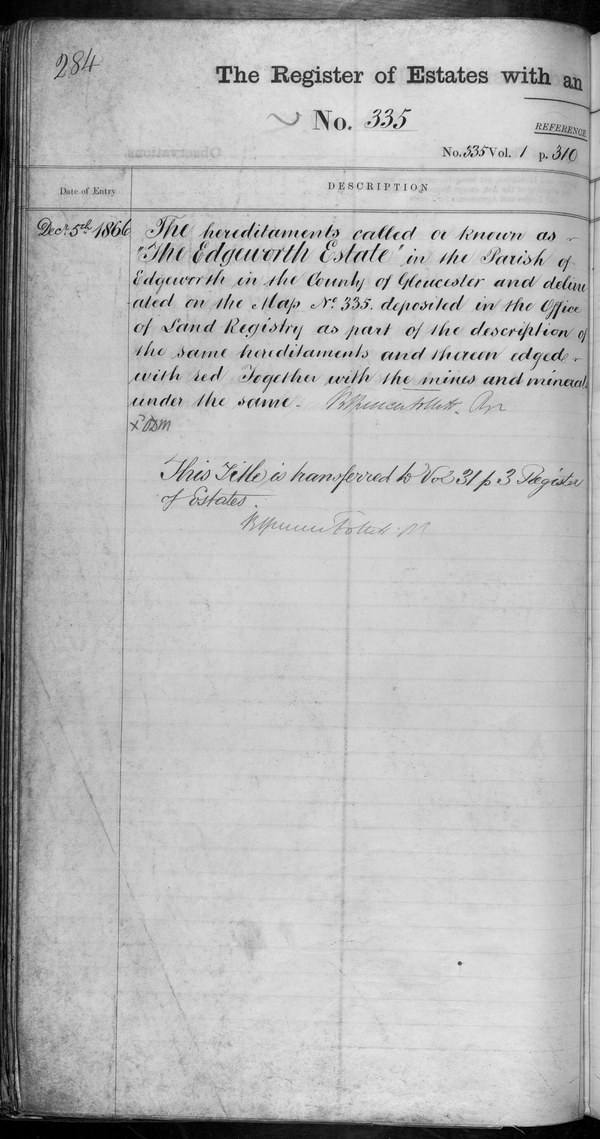 284
The Register of Estates with an
No. 335
REFERENCE
No. 335 Vol. 1 p. 310
Date of Entry
DESCRIPTION
Decr. 5th 1866
The hereditaments called or known as
"The Edgeworth Estate" in the Parish of
Edgeworth in the County of Gloucester and deline
ated on the Map No. 335. deposited in the Office
of Land Registry as part of the description of
the same hereditaments and therein edged
with red Together with the mines and minerals
under the same. Follett.
This Title is transferred to Vol 31 p 3 Register
of Estates.
Spencer Follett